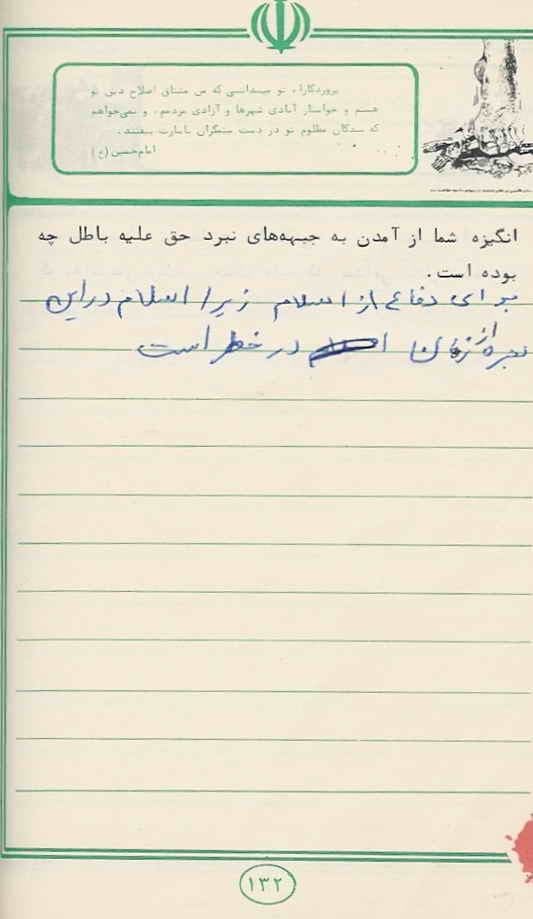 پروردگارا، تو میدانی که من متنای اصلاح دین تو
هستم و خواستار آبادی شهرها و آزادی مردمم، و نمی‌خواهم
که بندگان مظلوم تو در دست ستمگران بیفتند.
امام حسین (ع)
انگیزه شما از آمدن به جبهه‌های نبرد حق علیه باطل چه
بوده است.
برای دفاع از اسلام زیرا اسلام در این
از زمان در خطر است
۱۳۲